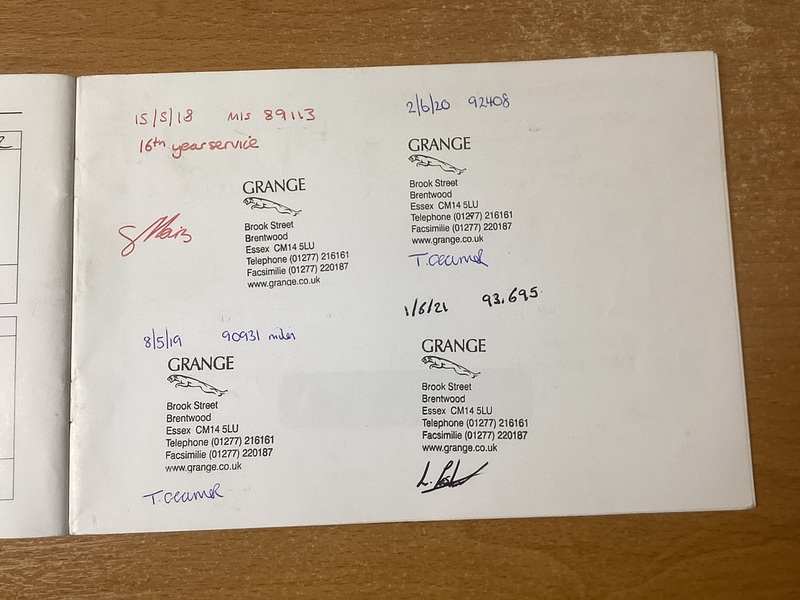 15/5/18 mls 89113
16th year service
GRANGE
Brook Street
Brentwood
Essex CM14 5LU
Telephone (01277) 216161
Facsimilie (01277) 220187
www.grange.co.uk
8/5/19 90931 miles
GRANGE
Brook Street
Brentwood
Essex CM14 5LU
Telephone (01277) 216161
Facsimilie (01277) 220187
www.grange.co.uk
2/6/20 92408
GRANGE
Brook Street
Brentwood
Essex CM14 5LU
Telephone (01277) 216161
Facsimilie (01277) 220187
www.grange.co.uk
1/6/21 93,695
GRANGE
Brook Street
Brentwood
Essex CM14 5LU
Telephone (01277) 216161
Facsimilie (01277) 220187
www.grange.co.uk